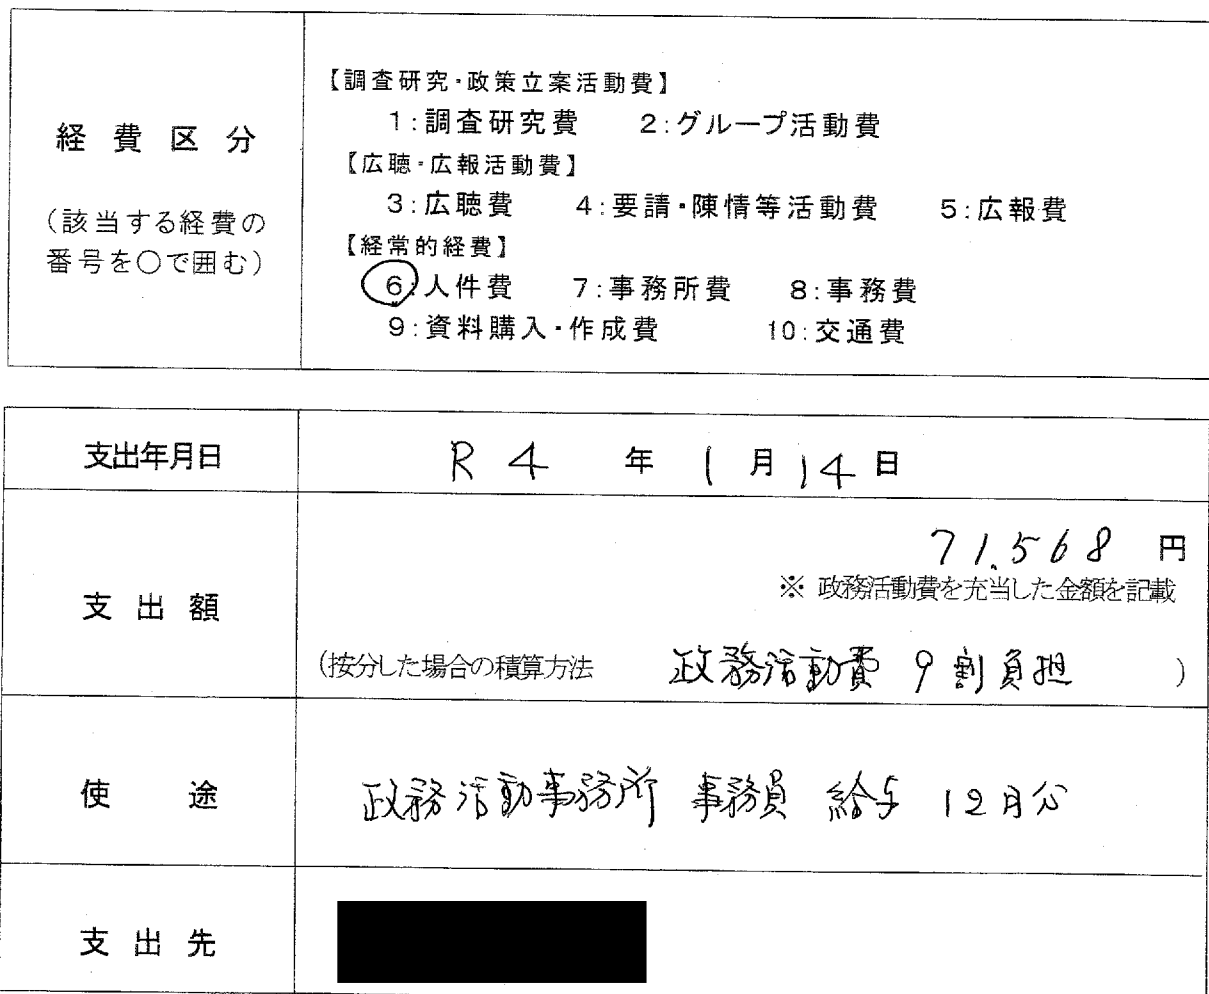 経費区分
(該当する経費の
番号を○で囲む)
【調査研究・政策立案活動費】
1:調査研究費 2:グループ活動費
【広聴・広報活動費】
3:広聴費 4:要請・陳情等活動費 5:広報費
【経常的経費】
6:人件費 7:事務所費 8:事務費
9:資料購入・作成費 10:交通費
支出年月日 R4年1月14日
支出額 71,568円
※ 政務活動費を充当した金額を記載
(按分した場合の積算方法 政務活動費 9割負担 )
使途 政務活動事務所 事務員 給与 12月分
支出先